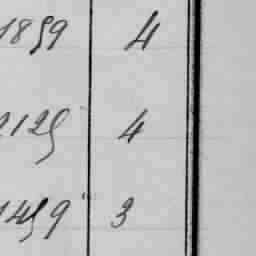 1859 4
2125 4
1459 3